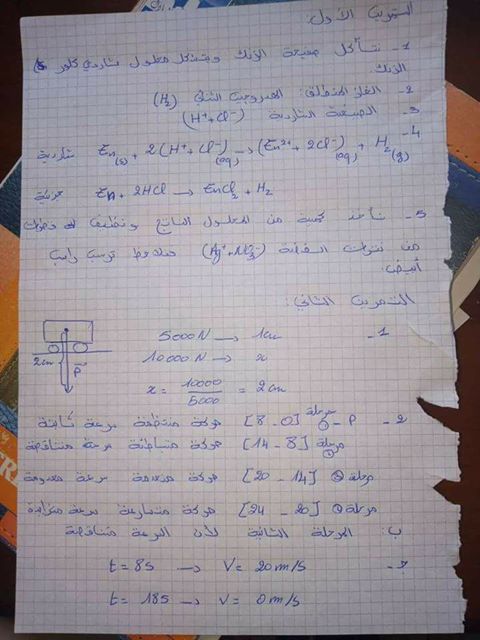 التمرين الأول:
1- تتآكل صفيحة الزنك ويتشكل محلول شاردي كلور
الزنك.
2- الغاز المنطلق: الهيدروجين الثنائي (H2)
3- الصيغة الشاردية (H+ + Cl-)
4- شاردية Zn(s) + 2(H+ + Cl-)(aq) → (Zn2+ + 2Cl-)(aq) + H2(g)
جزيئية Zn + 2HCl → ZnCl2 + H2
5- نأخذ كمية من المحلول الناتج ونضيف له قطرات
من نترات الفضة (Ag+ + NO3-) فنلاحظ ترسب راسب
أبيض.
التمرين الثاني:
1- 5000N → 1cm
10000N → x
x = 10000/5000 = 2cm
2cm P
2- أ- مرحلة 1 [0 - 8] حركة منتظمة سرعة ثابتة
مرحلة 2 [8 - 14] حركة متباطئة سرعة متناقصة
مرحلة 3 [14 - 20] حركة منعدمة سرعة معدومة
مرحلة 4 [20 - 24] حركة متسارعة سرعة متزايدة
ب: المرحلة الثانية لأن السرعة متناقصة
ج- t = 8s → V = 20m/s
t = 18s → V = 0m/s